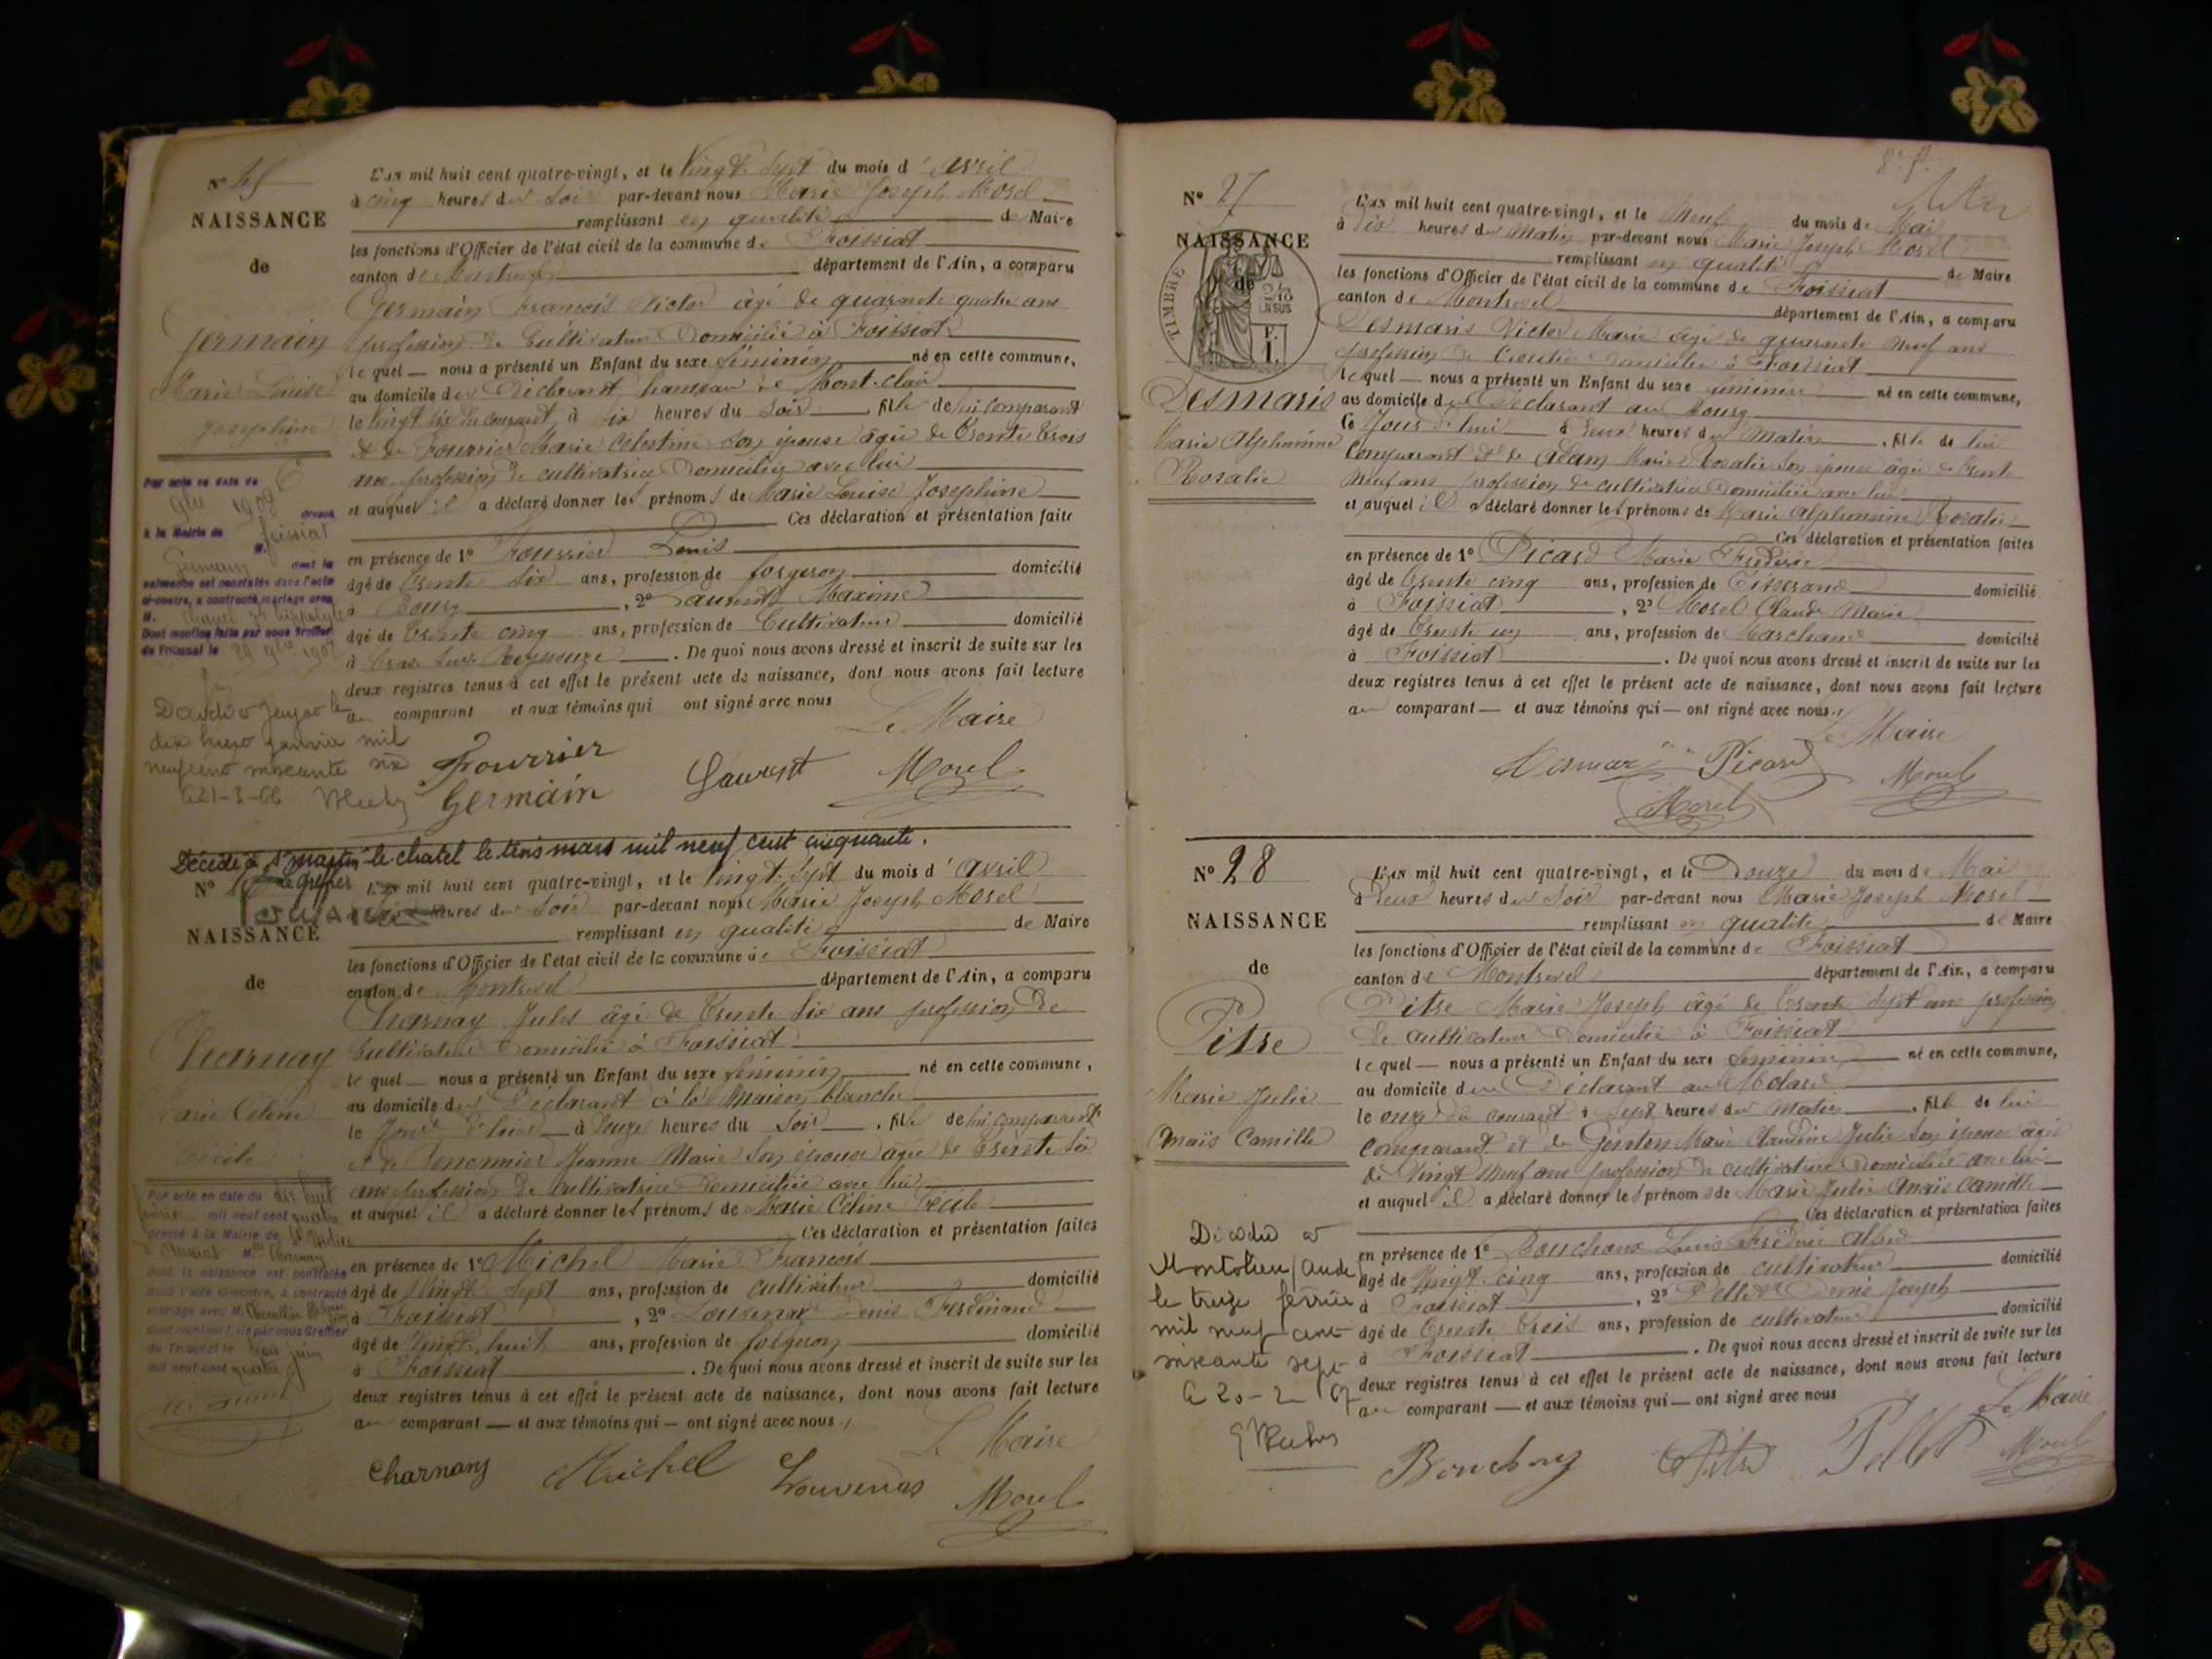 N° 25
NAISSANCE
de
Germain
Marie Louise
Josephine
Par acte en date du 6
9bre 1908 dressé
à la Mairie de foissiat
M. Germain dont la
naissance est constatée dans l'acte
ci-contre, a contracté mariage avec
M.
Dont mention faite par nous Greffier
du Tribunal le 29 9bre 1908
Décédée
dix huit janvier mil
neuf cent soixante six
L'an mil huit cent quatre-vingt, et le Vingt Sept du mois d'avril
à cinq heures du Soir par-devant nous Marie Joseph Morel
remplissant en qualité de Maire
les fonctions d'Officier de l'état civil de la commune de Foissiat
canton de Montrevel département de l'Ain, a comparu
Germain François Victor âgé de quarante quatre ans
profession de Cultivateur Domicilié à Foissiat
le quel — nous a présenté un Enfant du sexe féminin né en cette commune,
au domicile du Déclarant hameau de Mont-clair
le vingt six du courant à six heures du Soir, fille de lui Comparant
et de Fourrier Marie Célestine Son épouse âgée de Trente trois
ans profession de cultivatrice Domiciliée avec lui
et auquel il a déclaré donner les prénoms de Marie Louise Josephine
Ces déclaration et présentation faite
en présence de 1° Fourrier Denis
âgé de Trente Six ans, profession de forgeron domicilié
à Bourg, 2° Laurent Maxime
âgé de Trente cinq ans, profession de Cultivateur domicilié
à Cras Sur Reyssouze. De quoi nous avons dressé et inscrit de suite sur les
deux registres tenus à cet effet le présent acte de naissance, dont nous avons fait lecture
au comparant et aux témoins qui ont signé avec nous
Le Maire
Fourrier
Germain Laurent Morel
Décédée à St martin-le-chatel le trois mars mil neuf cent cinquante.
Le greffier
N°
NAISSANCE
de
Charnay
Marie Céline
Cécile
Par acte en date du dix huit
février mil neuf cent quatre
dressé à la Mairie de St Didier
d'Aussiat M. Charnay
dont la naissance est constatée
dans l'acte ci-contre, a contracté
mariage avec M. Chevallier
dont mention faite par nous Greffier
du Tribunal le trois juin
mil neuf cent quatre
L'an mil huit cent quatre-vingt, et le Vingt Sept du mois d'avril
heures du Soir par-devant nous Marie Joseph Morel
remplissant en qualité de Maire
les fonctions d'Officier de l'état civil de la commune de Foissiat
canton de Montrevel département de l'Ain, a comparu
Charnay Jules âgé de Trente Six ans profession de
Cultivateur Domicilié à Foissiat
le quel — nous a présenté un Enfant du sexe féminin né en cette commune,
au domicile du Déclarant à la Maison blanche
le Jour d'hui à Douze heures du Soir, fille de lui comparant
et de Jeanne Marie Son épouse âgée de Trente Six
ans profession de cultivatrice domiciliée avec lui
et auquel il a déclaré donner les prénoms de Marie Céline Cécile
Ces déclaration et présentation faites
en présence de 1° Michel Marie François
âgé de Vingt Sept ans, profession de cultivateur domicilié
à Foissiat, 2° Denis Ferdinand
âgé de Vingt huit ans, profession de forgeron domicilié
à Foissiat. De quoi nous avons dressé et inscrit de suite sur les
deux registres tenus à cet effet le présent acte de naissance, dont nous avons fait lecture
au comparant — et aux témoins qui — ont signé avec nous
Le Maire
Charnay Michel Morel
N° 27
NAISSANCE
de
TIMBRE
Desmaris
Marie Alphonsine
Rosalie
L'an mil huit cent quatre-vingt, et le Neuf du mois de Mai
à Dix heures du Matin par-devant nous Marie Joseph Morel
remplissant en qualité de Maire
les fonctions d'Officier de l'état civil de la commune de Foissiat
canton de Montrevel département de l'Ain, a comparu
Desmaris Victor Marie âgé de quarante Neuf ans
profession de domicilié à Foissiat
le quel — nous a présenté un Enfant du sexe féminin né en cette commune,
au domicile du Déclarant au Bourg
Ce Jour d'hui à Deux heures du Matin, fille de lui
Comparant et de Adam Marie Rosalie Son épouse âgée de Trente
Neuf ans profession de cultivatrice Domiciliée avec lui
et auquel il a déclaré donner les prénoms de Marie Alphonsine Rosalie
Ces déclaration et présentation faites
en présence de 1° Picard Marie Frédéric
âgé de Trente cinq ans, profession de Tisserand domicilié
à Foissiat, 2° Morel Claude Marie
âgé de Trente un ans, profession de Marchand domicilié
à Foissiat. De quoi nous avons dressé et inscrit de suite sur les
deux registres tenus à cet effet le présent acte de naissance, dont nous avons fait lecture
au comparant — et aux témoins qui — ont signé avec nous
Le Maire
Picard Morel
Morel
N° 28
NAISSANCE
de
Pitre
Marie Julie
Anaïs Camille
Décédée à
Montolieu (Aude
le treize février
mil neuf cent
soixante sept
L'an mil huit cent quatre-vingt, et le Douze du mois de Mai
à Deux heures du Soir par-devant nous Marie Joseph Morel
remplissant en qualité de Maire
les fonctions d'Officier de l'état civil de la commune de Foissiat
canton de Montrevel département de l'Ain, a comparu
Pitre Marie Joseph âgé de Trente Sept ans profession
de cultivateur domicilié à Foissiat
le quel — nous a présenté un Enfant du sexe féminin né en cette commune,
au domicile du Déclarant au Molard
le onze du courant à Sept heures du Matin, fille de lui
comparant et de Genton Marie Claudine Julie Son épouse âgée
de Vingt Neuf ans profession de cultivatrice domiciliée avec lui
et auquel il a déclaré donner les prénoms de Marie Julie Anaïs Camille
Ces déclaration et présentation faites
en présence de 1° Louis Frédéric Alfred
âgé de Vingt-cinq ans, profession de cultivateur domicilié
à Foissiat, 2° Pellet Denis Joseph
âgé de Trente Trois ans, profession de cultivateur domicilié
à Foissiat. De quoi nous avons dressé et inscrit de suite sur les
deux registres tenus à cet effet le présent acte de naissance, dont nous avons fait lecture
au comparant — et aux témoins qui — ont signé avec nous
Le Maire
Pitre Pellet Morel